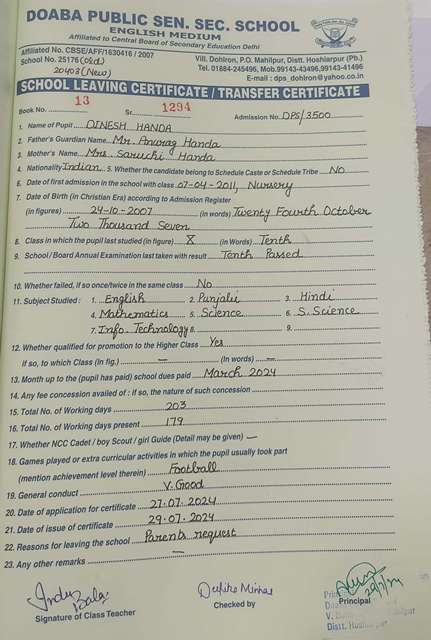 DOABA PUBLIC SEN. SEC. SCHOOL
ENGLISH MEDIUM
Affiliated to Central Board of Secondary Education Delhi
Affiliated No. CBSE/AFF/1630416 / 2007
School No. 25176 (old)
20403 (New)
Vill. Dohlron, P.O. Mahilpur, Distt. Hoshiarpur (Pb.)
Tel. 01884-245496, Mob.99143-43496,99143-41496
E-mail : dps_dohlron@yahoo.co.in
SCHOOL LEAVING CERTIFICATE / TRANSFER CERTIFICATE
Book No. 13 Sr. 1294 Admission No. DPS/3500
1. Name of Pupil DINESH HANDA
2. Father's Guardian Name Mr. Anurag Handa
3. Mother's Name Mrs. Saruchi Handa
4. Nationality Indian 5. Whether the candidate belong to Schedule Caste or Schedule Tribe No
6. Date of first admission in the school with class 07-04-2011, Nursery
7. Date of Birth (in Christian Era) according to Admission Register
(in figures) 24-10-2007 (in words) Twenty Fourth October
Two Thousand Seven
8. Class in which the pupil last studied (in figure) X (in Words) Tenth
9. School / Board Annual Examination last taken with result Tenth Passed
10. Whether failed, if so once/twice in the same class No
11. Subject Studied : 1. English 2. Punjabi 3. Hindi
4. Mathematics 5. Science 6. S. Science
7. Info. Technology 8. 9.
12. Whether qualified for promotion to the Higher Class Yes
if so, to which Class (In fig.) — (In words) —
13. Month up to the (pupil has paid) school dues paid March 2024
14. Any fee concession availed of : if so, the nature of such concession
15. Total No. of Working days 203
16. Total No. of Working days present 179
17. Whether NCC Cadet / boy Scout / girl Guide (Detail may be given) —
18. Games played or extra curricular activities in which the pupil usually took part
(mention achievement level therein) Football
19. General conduct V. Good
20. Date of application for certificate 27.07.2024
21. Date of issue of certificate 29.07.2024
22. Reasons for leaving the school Parents request
23. Any other remarks —
Indu Bala
Signature of Class Teacher
Checked by
Principal
Distt.